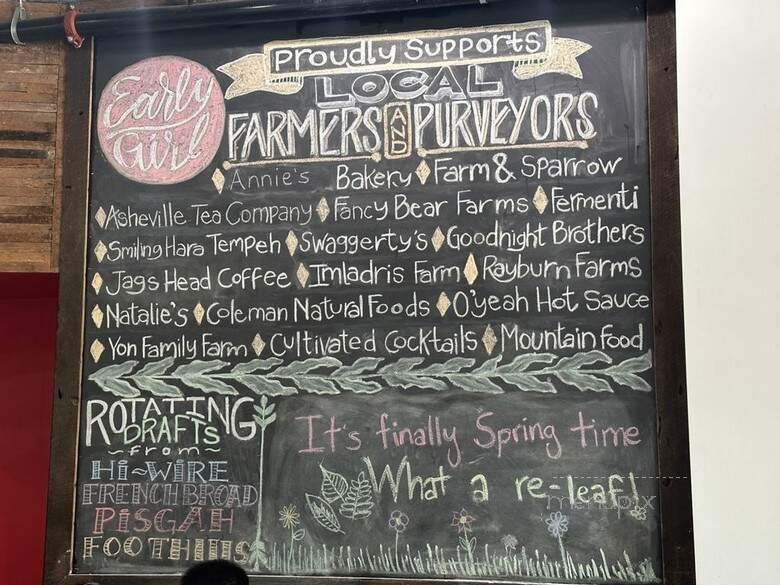 Early
Girl
Proudly Supports
LOCAL
FARMERS AND PURVEYORS
Annie's Bakery Farm & Sparrow
Asheville Tea Company Fancy Bear Farms Fermenti
Smiling Hara Tempeh Swaggerty's Goodnight Brothers
Jags Head Coffee Imladris Farm Rayburn Farms
Natalie's Coleman Natural Foods O'yeah Hot Sauce
Yon Family Farm Cultivated Cocktails Mountain food
ROTATING
DRAFTS
~from~
HI~WIRE
FRENCH BROAD
PISGAH
FOOTHILLS
It's finally Spring time
What a re-leaf!
menupix